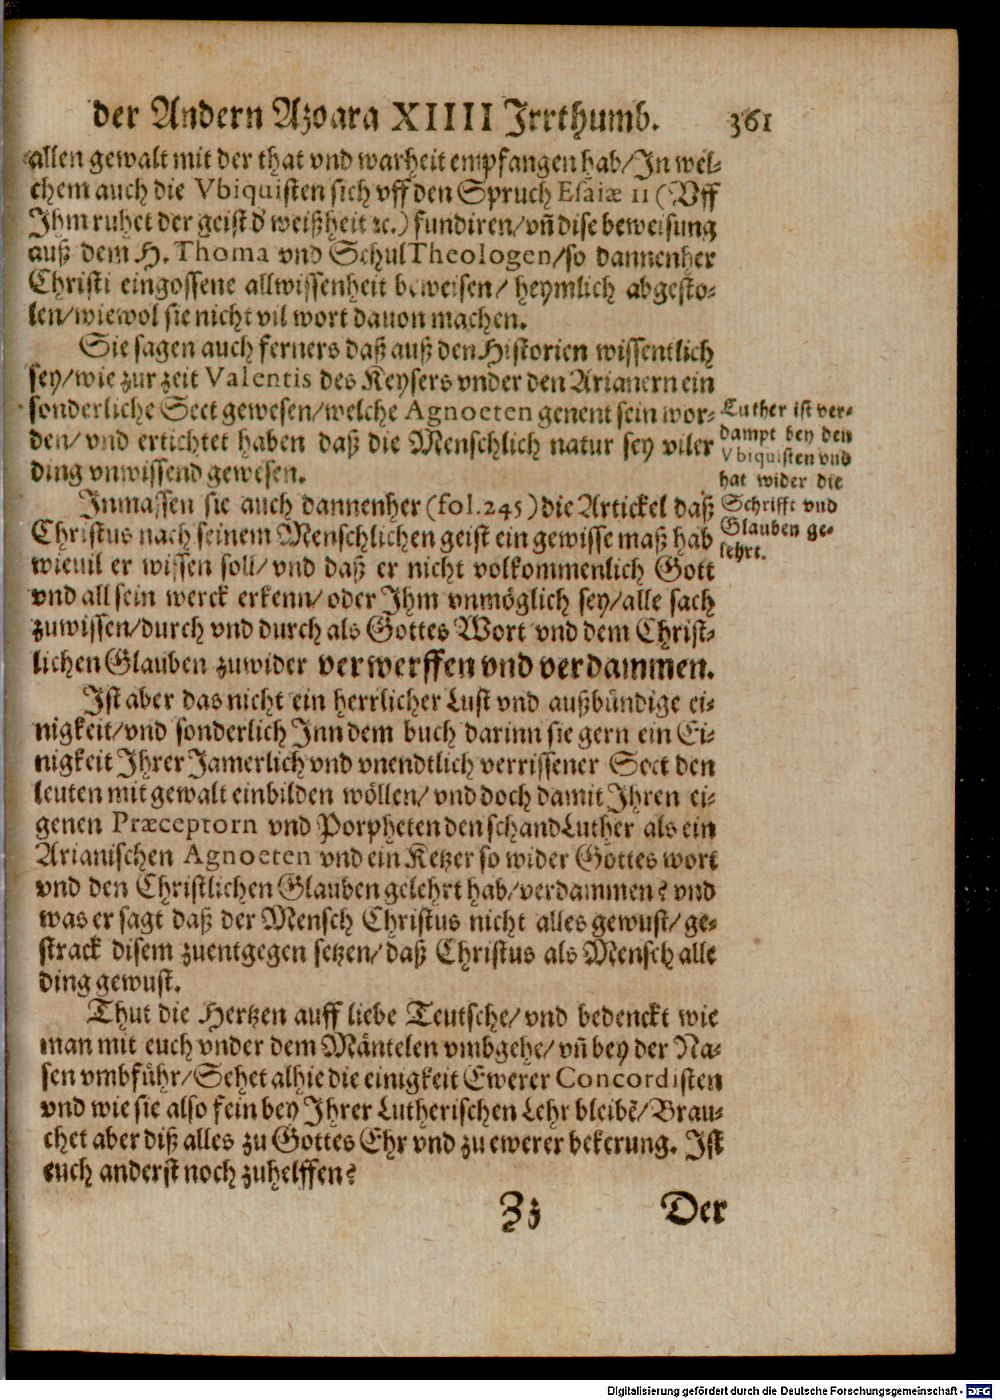 der Andern Azoara XIIII Irrthumb. 361
allen gewalt mit der that vnd warheit empfangen hab/ In wel-
chem auch die Vbiquisten sich vff den Spruch Esaiæ 11 (Vff
Ihm ruhet der geist d' weißheit ꝛc.) fundiren/ vn̄ dise beweisung
auß dem H. Thoma vnd SchulTheologen/ so dannenher
Christi eingossene allwissenheit beweisen/ heymlich abgesto-
len/ wiewol sie nicht vil wort dauon machen.
Sie sagen auch ferners daß auß den Historien wissentlich
sey/ wie zur zeit Valentis des Keysers vnder den Arianern ein
sonderliche Sect gewesen/ welche Agnoeten genent sein wor-
den/ vnd ertichtet haben daß die Menschlich natur sey viler
ding vnwissend gewesen.
Inmassen sie auch dannenher (fol. 245) die Artickel daß
Christus nach seinem Menschlichen geist ein gewisse maß hab
wieuil er wissen soll/ vnd daß er nicht volkommenlich Gott
vnd all sein werck erkenn/ oder Ihm vnmöglich sey/ alle sach
zuwissen/ durch vnd durch als Gottes Wort vnd dem Christ-
lichen Glauben zuwider verwerffen vnd verdammen.
Luther ist ver-
dampt bey den
Vbiquisten vnd
hat wider die
Schrifft vnd
Glauben ge-
lehrt.
Ist aber das nicht ein herrlicher Lust vnd außbündige ei-
nigkeit/ vnd sonderlich Inn dem buch darinn sie gern ein Ei-
nigkeit Ihrer Jamerlich vnd vnendtlich verrissener Sect den
leuten mit gewalt einbilden wöllen/ vnd doch damit Ihren ei-
genen Præceptorn vnd Porpheten den schandLuther als ein
Arianischen Agnoeten vnd ein Ketzer so wider Gottes wort
vnd den Christlichen Glauben gelehrt hab/ verdammen? vnd
was er sagt daß der Mensch Christus nicht alles gewust/ ge-
strack disem zuentgegen setzen/ daß Christus als Mensch alle
ding gewust.
Thut die Hertzen auff liebe Teutsche/ vnd bedenckt wie
man mit euch vnder dem Mäntelen vmbgehe/ vn̄ bey der Na-
sen vmbführ/ Sehet alhie die einigkeit Ewerer Concordisten
vnd wie sie also fein bey Ihrer Lutherischen Lehr bleibē/ Brau-
chet aber diß alles zu Gottes Ehr vnd zu ewerer bekerung. Ist
euch anderst noch zuhelffen?
Zz Der
Digitalisierung gefördert durch die Deutsche Forschungsgemeinschaft - DFG